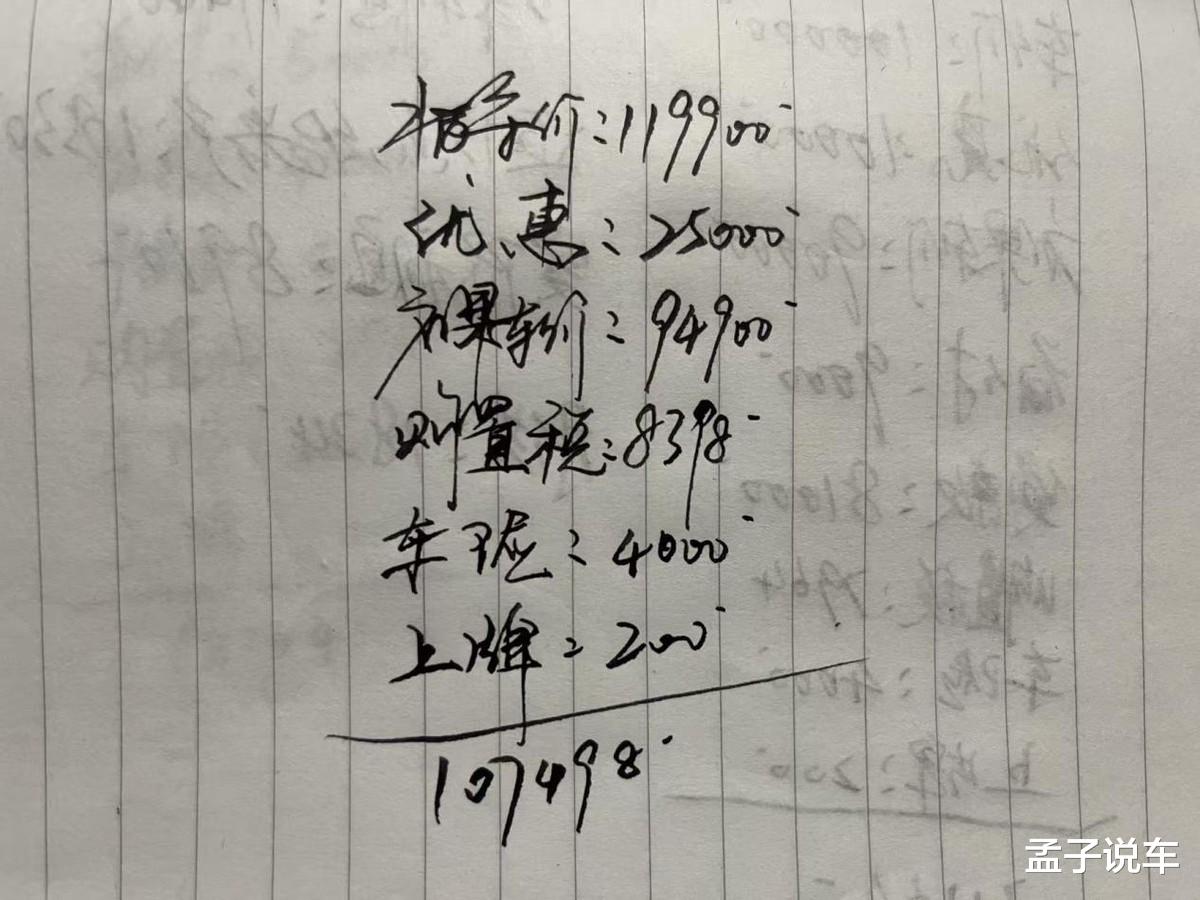 指导价:119900
优惠:25000
裸车价:94900
购置税:8398
车险:4000
上牌:200
107498
孟子说车